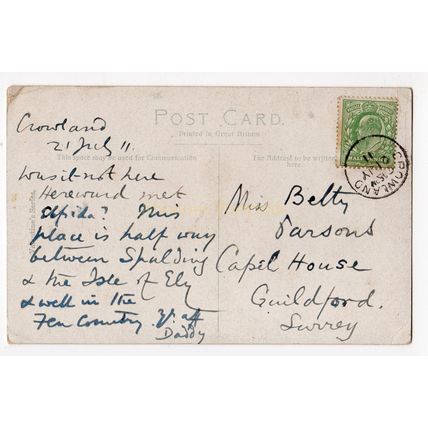 POST CARD.
Printed in Great Britain
This space may be used for Communication
The Address to be written here
Crowland
21 July 11.
Was it not here
Hereward met
Alfida? This
place is half way
between Spalding
& the Isle of Ely
& well in the
Fen Country. Yr aff
Daddy
Miss Betty
Parsons
Capel House
Guildford.
Surrey
CROWLAND
JY 21
11
HALF